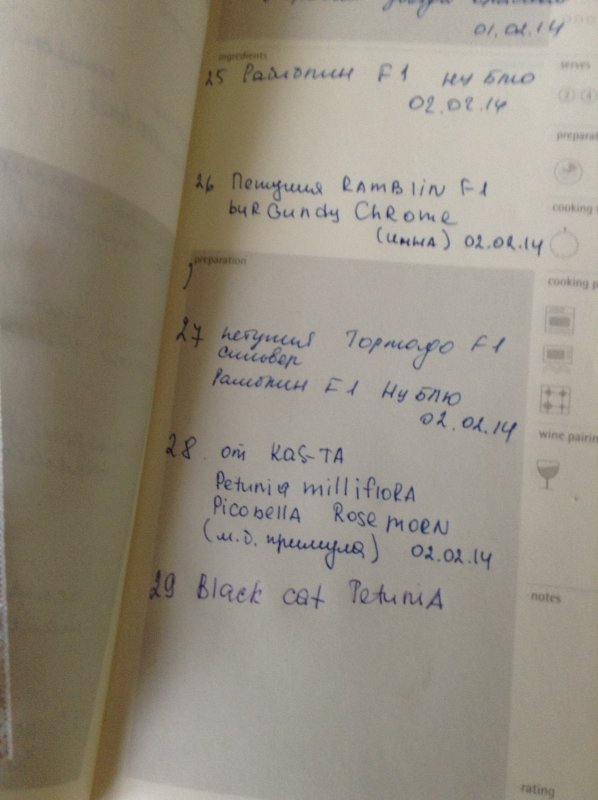 01.02.14
ingredients
25 Рамблин F1 Ну Блю
02.02.14
serves
2 4
preparat
26 Петуния RAMBLIN F1
burgundy Chrome
(инна) 02.02.14
cooking
preparation
cooking p
27 петуния Торнадо F1
сильвер
Рамблин F1 Ну Блю
02.02.14
wine pairin
28 от Kaς-TA
Petunia milliflora
Picobella Rose morn
(м.б. примула) 02.02.14
29 Black cat Petunia
notes
rating